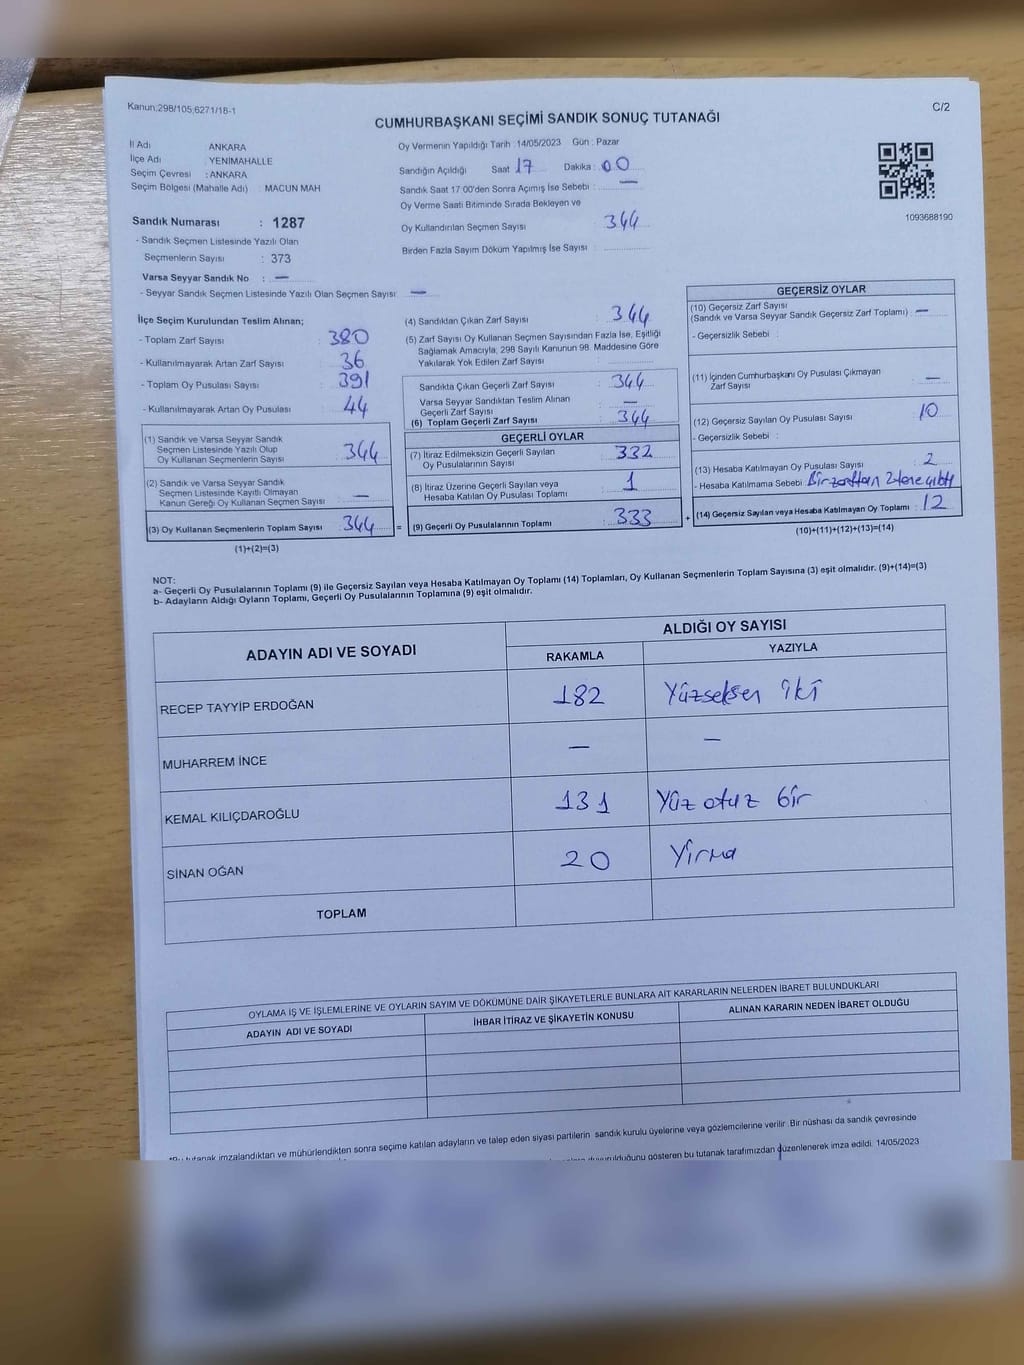 Kanun:298/105;6271/18-1
C/2
CUMHURBAŞKANI SEÇİMİ SANDIK SONUÇ TUTANAĞI
İl Adı ANKARA
İlçe Adı : YENİMAHALLE
Seçim Çevresi : ANKARA
Seçim Bölgesi (Mahalle Adı) : MACUN MAH
Sandık Numarası : 1287
- Sandık Seçmen Listesinde Yazılı Olan
Seçmenlerin Sayısı : 373
Varsa Seyyar Sandık No : —
- Seyyar Sandık Seçmen Listesinde Yazılı Olan Seçmen Sayısı —
Oy Vermenin Yapıldığı Tarih :14/05/2023 Gün : Pazar
Sandığın Açıldığı Saat 17 Dakika : 00
Sandık Saat 17:00'den Sonra Açımış İse Sebebi : —
Oy Verme Saati Bitiminde Sırada Bekleyen ve
Oy Kullandırılan Seçmen Sayısı 344
Birden Fazla Sayım Döküm Yapılmış İse Sayısı :
1093688190
İlçe Seçim Kurulundan Teslim Alınan;
- Toplam Zarf Sayısı : 380
- Kullanılmayarak Artan Zarf Sayısı : 36
- Toplam Oy Pusulası Sayısı : 391
- Kullanılmayarak Artan Oy Pusulası : 44
(1) Sandık ve Varsa Seyyar Sandık
Seçmen Listesinde Yazılı Olup
Oy Kullanan Seçmenlerin Sayısı : 344
(2) Sandık ve Varsa Seyyar Sandık
Seçmen Listesinde Kayıtlı Olmayan
Kanun Gereği Oy Kullanan Seçmen Sayısı : —
(3) Oy Kullanan Seçmenlerin Toplam Sayısı : 344 =
(1)+(2)=(3)
(4) Sandıktan Çıkan Zarf Sayısı : 344
(5) Zarf Sayısı Oy Kullanan Seçmen Sayısından Fazla İse, Eşitliği
Sağlamak Amacıyla, 298 Sayılı Kanunun 98. Maddesine Göre
Yakılarak Yok Edilen Zarf Sayısı :
Sandıkta Çıkan Geçerli Zarf Sayısı : 344
Varsa Seyyar Sandıktan Teslim Alınan
Geçerli Zarf Sayısı : —
(6) Toplam Geçerli Zarf Sayısı : 344
GEÇERLİ OYLAR
(7) İtiraz Edilmeksizin Geçerli Sayılan
Oy Pusulalarının Sayısı : 332
(8) İtiraz Üzerine Geçerli Sayılan veya
Hesaba Katılan Oy Pusulası Toplamı : 1
(9) Geçerli Oy Pusulalarının Toplamı : 333 +
GEÇERSİZ OYLAR
(10) Geçersiz Zarf Sayısı
(Sandık ve Varsa Seyyar Sandık Geçersiz Zarf Toplamı) : —
- Geçersizlik Sebebi :
(11) İçinden Cumhurbaşkanı Oy Pusulası Çıkmayan
Zarf Sayısı : —
(12) Geçersiz Sayılan Oy Pusulası Sayısı : 10
- Geçersizlik Sebebi :
(13) Hesaba Katılmayan Oy Pusulası Sayısı : 2
- Hesaba Katılmama Sebebi : Bir zarftan 2 tane çıktı
(14) Geçersiz Sayılan veya Hesaba Katılmayan Oy Toplamı : 12
(10)+(11)+(12)+(13)=(14)
NOT:
a- Geçerli Oy Pusulalarının Toplamı (9) ile Geçersiz Sayılan veya Hesaba Katılmayan Oy Toplamı (14) Toplamları, Oy Kullanan Seçmenlerin Toplam Sayısına (3) eşit olmalıdır. (9)+(14)=(3)
b- Adayların Aldığı Oyların Toplamı, Geçerli Oy Pusulalarının Toplamına (9) eşit olmalıdır.
ADAYIN ADI VE SOYADI
ALDIĞI OY SAYISI
RAKAMLA YAZIYLA
RECEP TAYYİP ERDOĞAN 182 Yüzseksen iki
MUHARREM İNCE — —
KEMAL KILIÇDAROĞLU 131 Yüz otuz bir
SİNAN OĞAN 20 Yirmi
TOPLAM
OYLAMA İŞ VE İŞLEMLERİNE VE OYLARIN SAYIM VE DÖKÜMÜNE DAİR ŞİKAYETLERLE BUNLARA AİT KARARLARIN NELERDEN İBARET BULUNDUKLARI
ADAYIN ADI VE SOYADI İHBAR İTİRAZ VE ŞİKAYETİN KONUSU ALINAN KARARIN NEDEN İBARET OLDUĞU
*Bu tutanak imzalandıktan ve mühürlendikten sonra seçime katılan adayların ve talep eden siyasi partilerin sandık kurulu üyelerine veya gözlemcilerine verilir. Bir nüshası da sandık çevresinde
gösteren bu tutanak tarafımızdan düzenlenerek imza edildi. 14/05/2023